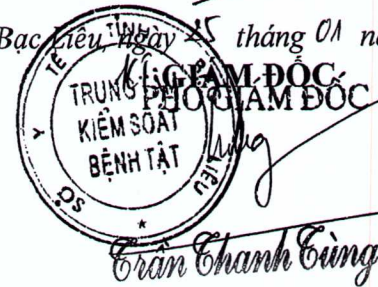 Bạc Liêu, ngày 25 tháng 01 n
KT. GIÁM ĐỐC
PHÓ GIÁM ĐỐC
SỞ Y TẾ TỈNH LIÊU
TRUNG
KIỂM SOÁT
BỆNH TẬT
Trần Thanh Tùng